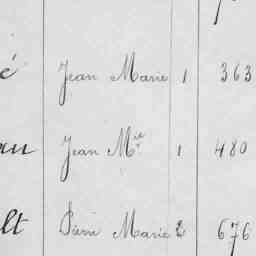 é Jean Marie 1 363
au Jean Mie 1 480
lt Pierre Marie 2 676